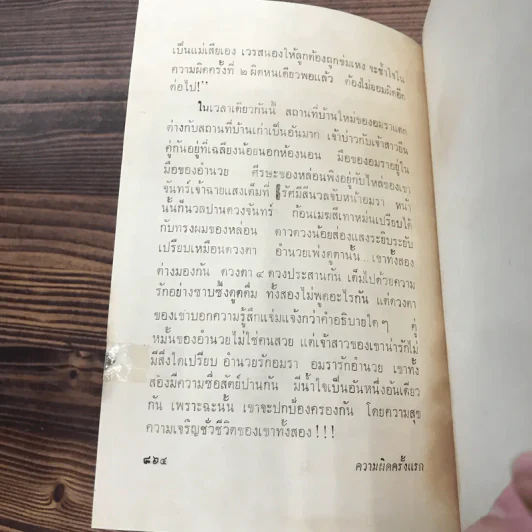 เป็นแม่เสียเอง เวรสนองให้ลูกต้องถูกข่มเหง จะช้ำใจใน
ความผิดครั้งที่ ๒ ผิดหนเดียวพอแล้ว ต้องไม่ยอมผิดอีก
ต่อไป!"
ในเวลาเดียวกันนี้ สถานที่บ้านใหม่ของอมราแตก
ต่างกับสถานที่บ้านเก่าเป็นอันมาก เจ้าบ่าวกับเจ้าสาวยืน
คู่กันอยู่ที่เฉลียงน้อยนอกห้องนอน มือของอมราอยู่ใน
มือของอำนวย ศีรษะของหล่อนพิงอยู่กับไหล่ของเขา
จันทร์เจ้าฉายแสงเต็มที่ รัศมีสีนวลจับหน้าอมรา หน้า
นั้นก็นวลปานดวงจันทร์ ก้อนเมฆสีเทาหม่นเปรียบได้
กับทรงผมของหล่อน ดาวดวงน้อยส่องแสงระยิบระยับ
เปรียบเหมือนดวงตา อำนวยเพ่งดูตานั้น .. เขาทั้งสอง
ต่างมองกัน ดวงตา ๔ ดวงประสานกัน เต็มไปด้วยความ
รักอย่างซาบซึ้งดูดดื่ม ทั้งสองไม่พูดอะไรกัน แต่ดวงตา
ของเขาบอกความรู้สึกแจ่มแจ้งกว่าคำอธิบายใด ๆ คู่
หมั้นของอำนวยไม่ใช่คนสวย แต่เจ้าสาวของเขาน่ารักไม่
มีสิ่งใดเปรียบ อำนวยรักอมรา อมรารักอำนวย เขาทั้ง
สองมีความซื่อสัตย์ปานกัน มีน้ำใจเป็นอันหนึ่งอันเดียว
กัน เพราะฉะนั้น เขาจะปกป้องครองกัน โดยความสุข
ความเจริญชั่วชีวิตของเขาทั้งสอง ! ! !
๙๒๔
ความผิดครั้งแรก